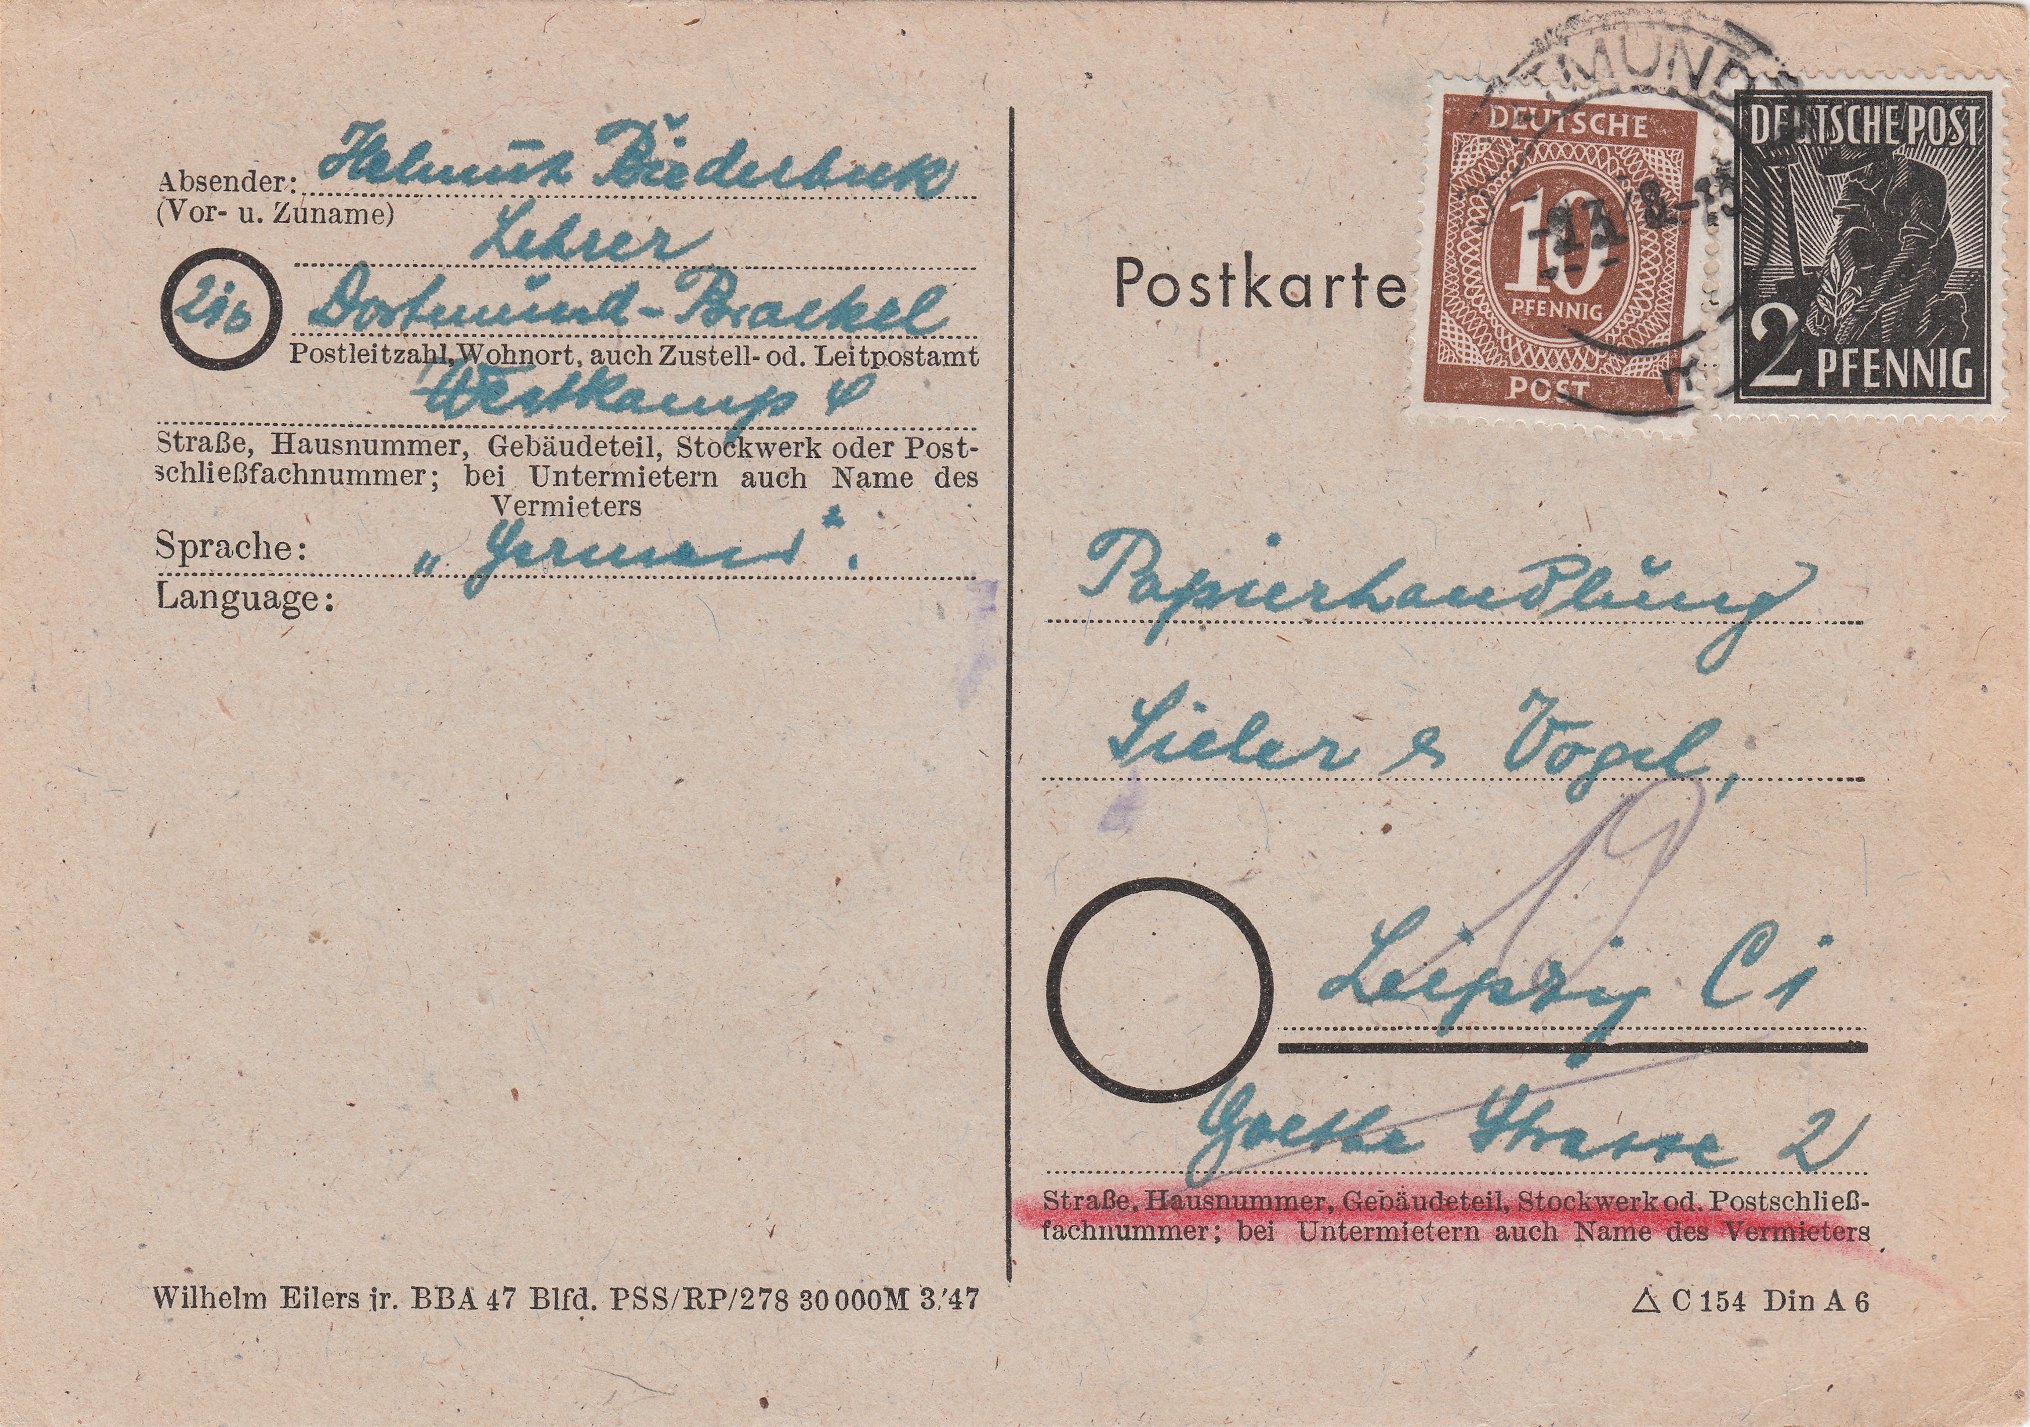 Absender: Helmut Biederbick
(Vor- u. Zuname)
Lehrer
21b Dortmund-Brackel
Postleitzahl, Wohnort, auch Zustell- od. Leitpostamt
Westkamp 4
Straße, Hausnummer, Gebäudeteil, Stockwerk oder Post-
schließfachnummer; bei Untermietern auch Name des
Vermieters
Sprache: „German".
Language:
Wilhelm Eilers jr. BBA 47 Blfd. PSS/RP/278 30000M 3/47
Postkarte
DEUTSCHE
10
PFENNIG
POST
DEUTSCHE POST
2 PFENNIG
Papierhandlung
Sieler & Vogel,
Leipzig C 1
Goethe Strasse 2
Straße, Hausnummer, Gebäudeteil, Stockwerk od. Postschließ-
fachnummer; bei Untermietern auch Name des Vermieters
C 154 Din A 6